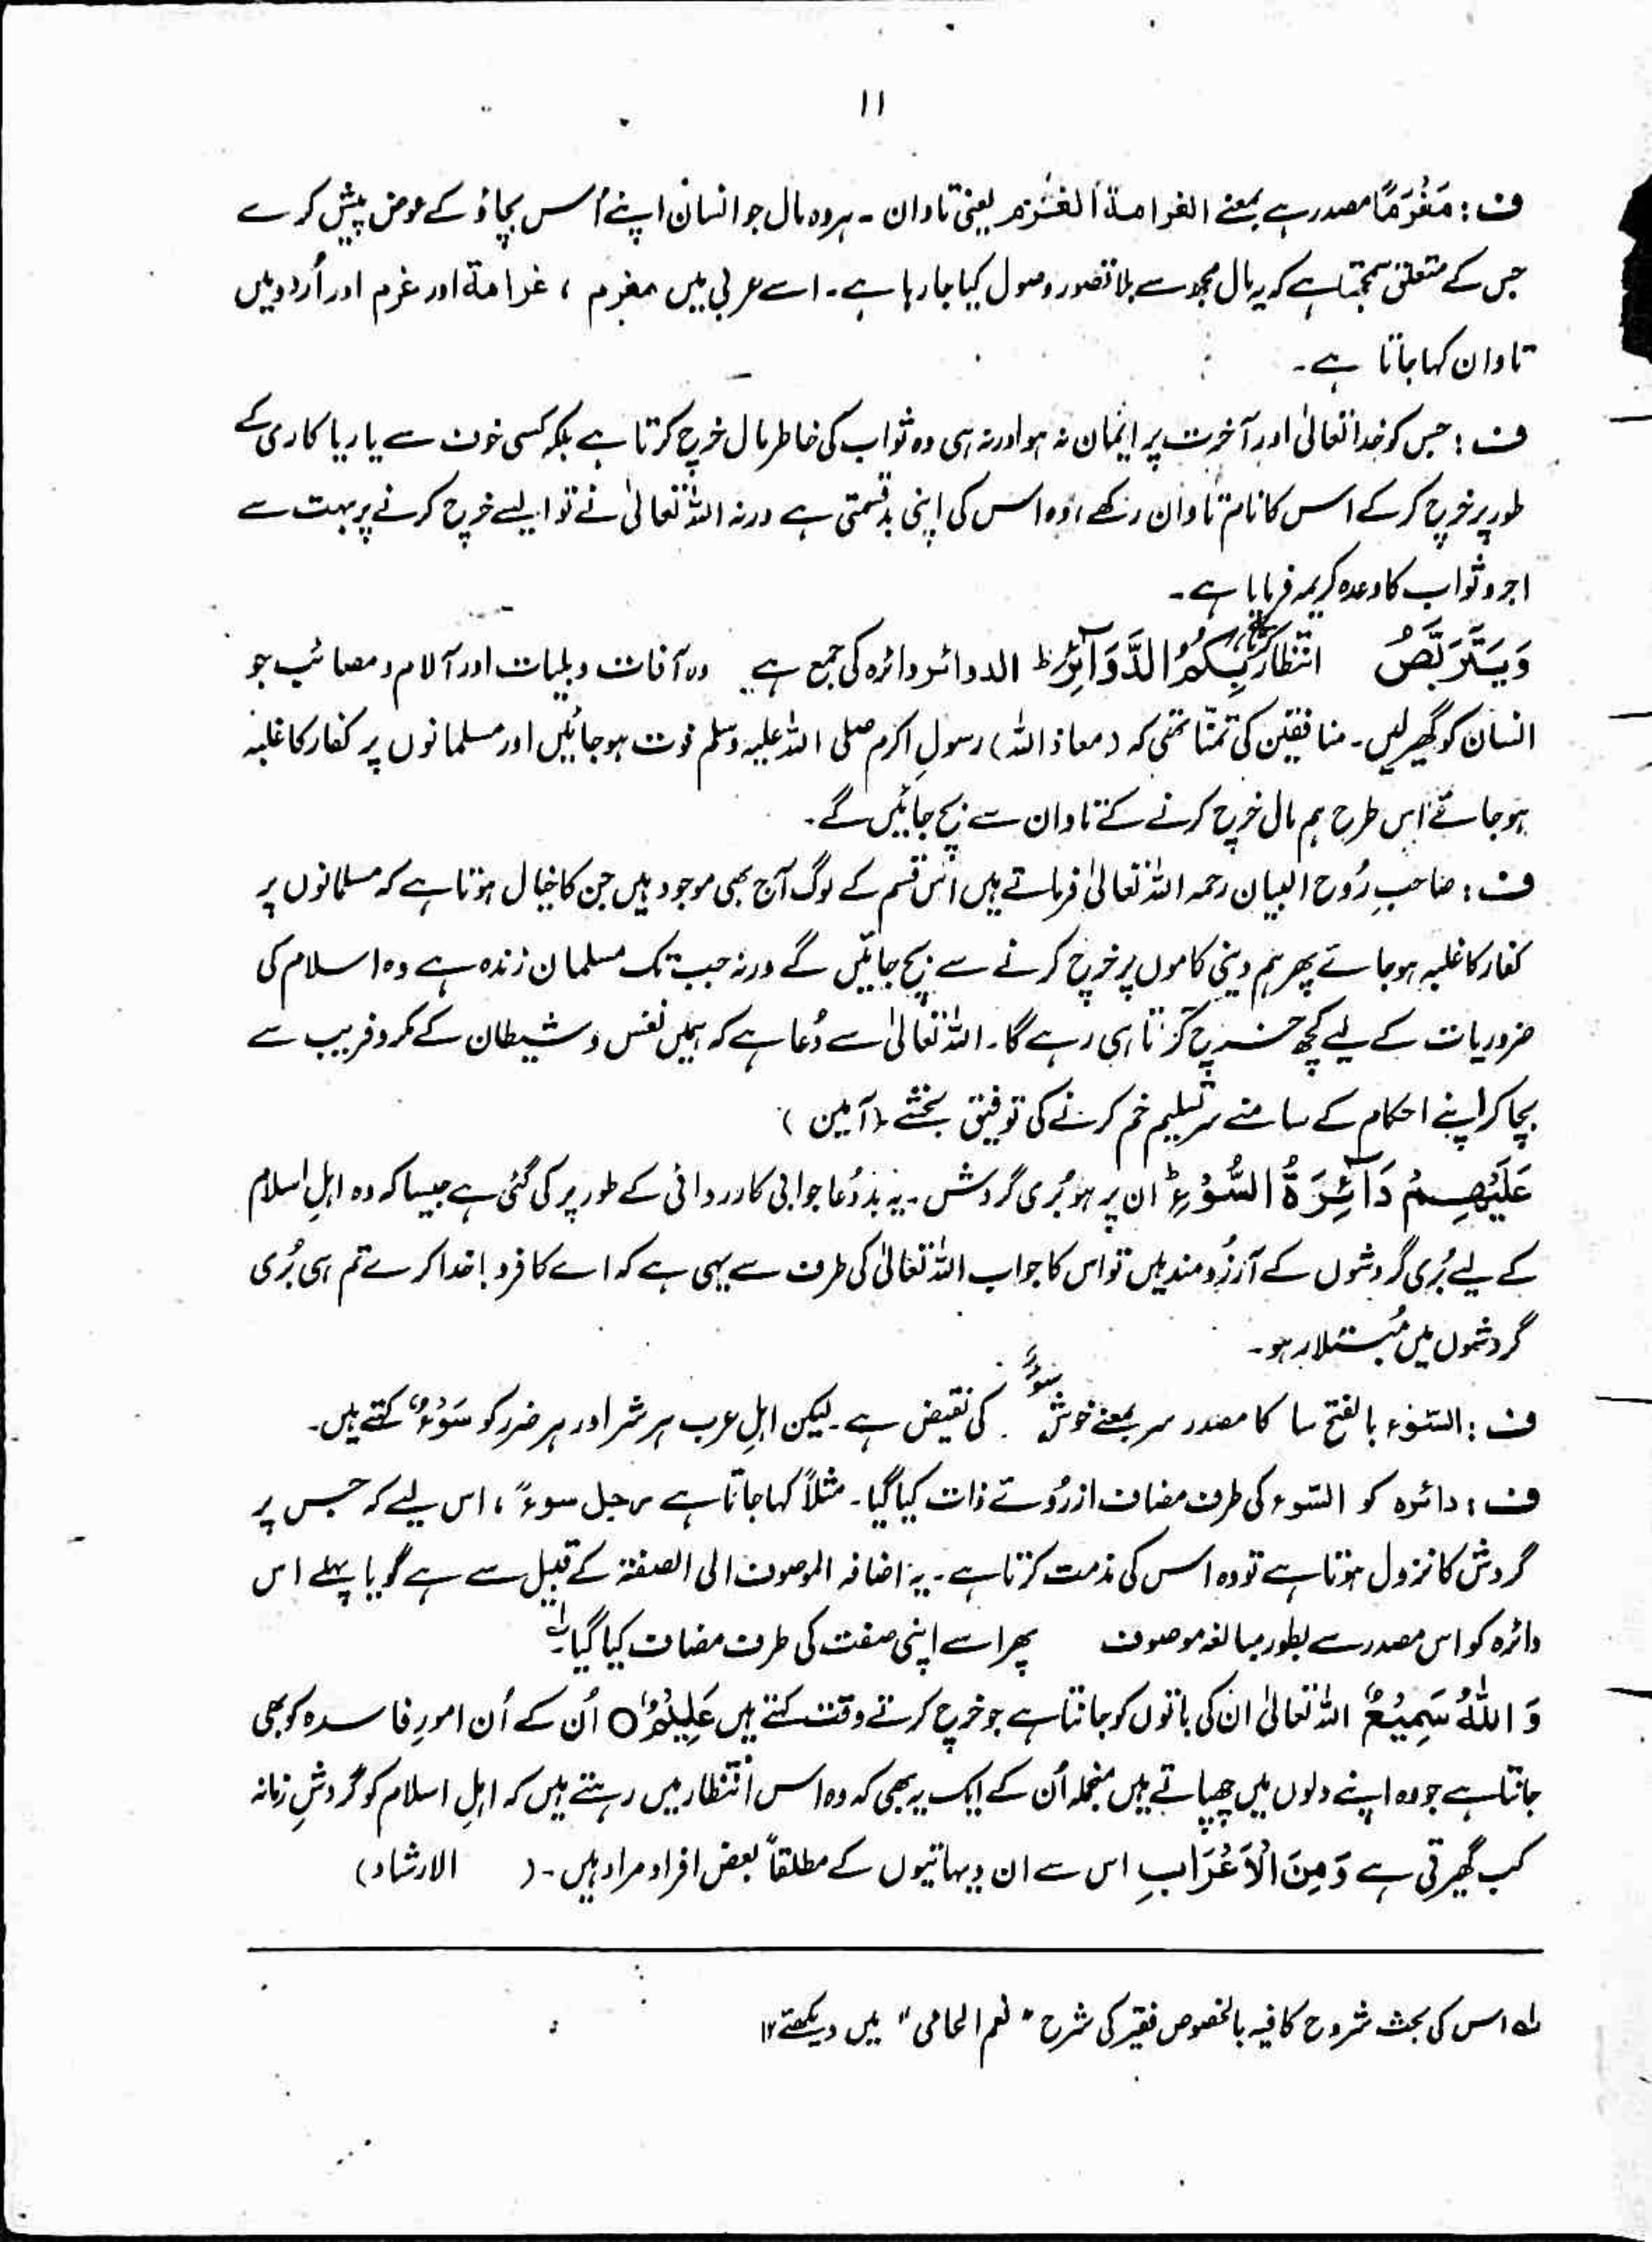 ۱۱
ف : مَغْرَمًا مصدر ہے بمعنے الغرامۃ الغُرم یعنی تاوان ۔ ہر وہ مال جو انسان اپنے اُس بچاؤ کے عوض پیش کرے
جس کے متعلق سمجھتا ہے کہ یہ مال مجھ سے بلا قصور وصول کیا جا رہا ہے ۔ اسے عربی میں مغرم ، غرامۃ اور غرم اور اُردو میں
تاوان کہا جاتا ہے ۔
ف : جس کو خدا تعالیٰ اور آخرت پر ایمان نہ ہو اور نہ ہی وہ ثواب کی خاطر مال خرچ کرتا ہے بلکہ کسی خوف سے یا ریاکاری کے
طور پر خرچ کر کے اس کا نام تاوان رکھے ، وہ اس کی اپنی بدقسمتی ہے ورنہ اللہ تعالیٰ نے تو ایسے خرچ کرنے پر بہت سے
اجر و ثواب کا وعدہ کریمہ فرمایا ہے ۔
وَيَتَرَبَّصُ انتظار بِكُمُ الدَّوَآئِرَ ط الدوائر دائرہ کی جمع ہے وہ آفات و بلیات اور آلام و مصائب جو
انسان کو گھیر لیں ۔ منافقین کی تمنّا تھی کہ ( معاذ اللہ ) رسولِ اکرم صلی اللہ علیہ وسلم فوت ہو جائیں اور مسلمانوں پر کفار کا غلبہ
ہو جائے اس طرح ہم مالی خرچ کرنے کے تاوان سے بچ جائیں گے ۔
ف : صاحبِ رُوح البیان رحمہ اللہ تعالیٰ فرماتے ہیں اس قسم کے لوگ آج بھی موجود ہیں جن کا خیال ہوتا ہے کہ مسلمانوں پر
کفار کا غلبہ ہو جائے پھر ہم دینی کاموں پر خرچ کرنے سے بچ جائیں گے ورنہ جب تک مسلمان زندہ ہے وہ اسلام کی
ضروریات کے لیے کچھ خرچ کرتا ہی رہے گا ۔ اللہ تعالیٰ سے دُعا ہے کہ ہمیں نفس و شیطان کے مکر و فریب سے
بچا کر اپنے احکام کے سامنے سر تسلیم خم کرنے کی توفیق بخشے ۔ ( آمین )
عَلَيْهِمْ دَآئِرَةُ السَّوْءِ ط ان پر ہو بُری گردش ۔ یہ بددُعا جوابی کارروائی کے طور پر کی گئی ہے جیسا کہ وہ اہلِ اسلام
کے لیے بُری گردشوں کے آرزُو مند ہیں تو اس کا جواب اللہ تعالیٰ کی طرف سے یہی ہے کہ اے کافرو ! خدا کرے تم ہی بُری
گردشوں میں مُبتلا رہو ۔
ف : السَّوْء بالفتح سا کا مصدر بمعنے خوش کی نقیض ہے ۔ لیکن اہلِ عرب ہر شر اور ہر ضرر کو سَوْءٌ کہتے ہیں ۔
ف : دائرہ کو السّوء کی طرف مضاف از رُوئے ذات کیا گیا ۔ مثلاً کہا جاتا ہے رجل سوءٍ ، اس لیے کہ جس پر
گردش کا نزول ہوتا ہے تو وہ اس کی مذمت کرتا ہے ۔ یہ اضافہ الموصوف الی الصفۃ کے قبیل سے ہے گویا پہلے اس
دائرہ کو اس مصدر سے بطور مبالغہ موصوف پھر اسے اپنی صفت کی طرف مضاف کیا گیا ۔ لہ
وَاللّٰهُ سَمِيْعٌ اللہ تعالیٰ ان کی باتوں کو جانتا ہے جو خرچ کرتے وقت کہتے ہیں عَلِيْمٌ ○ اُن کے اُن امورِ فاسدہ کو بھی
جانتا ہے جو وہ اپنے دلوں میں چھپاتے ہیں منجملہ اُن کے ایک یہ بھی کہ وہ اس انتظار میں رہتے ہیں کہ اہلِ اسلام کو گردشِ زمانہ
کب گھیرتی ہے وَمِنَ الْاَعْرَابِ اس سے ان دیہاتیوں کے مطلقاً بعض افراد مراد ہیں ۔ ( الارشاد )
لہ اس کی بحث شروح کافیہ بالخصوص فقیر کی شرح " نعم الحامی " میں دیکھئے ۱۲